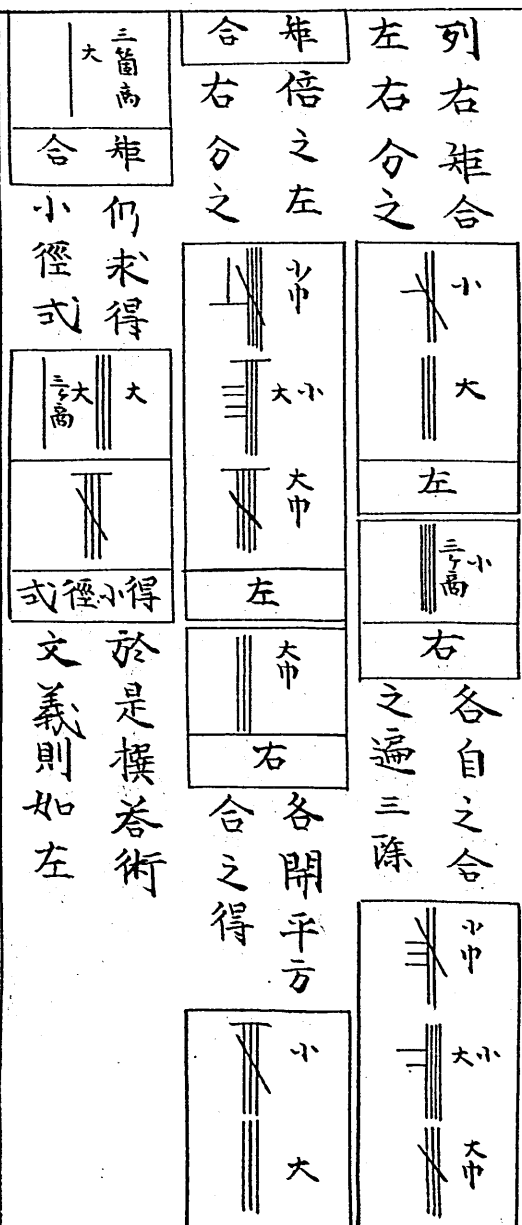 列右矩合
左右分之
小
大
左
三ヶ高 小
右
各自之合
之遍三除
小巾
大小
大巾
矩合
倍之左
右分之
小巾
大小
大巾
左
大巾
右
各開平方
合之得
小
大
三箇高
大
矩合
仍求得
小徑式
大
大
三ヶ高
得小徑式
於是撰荅術
文義則如左